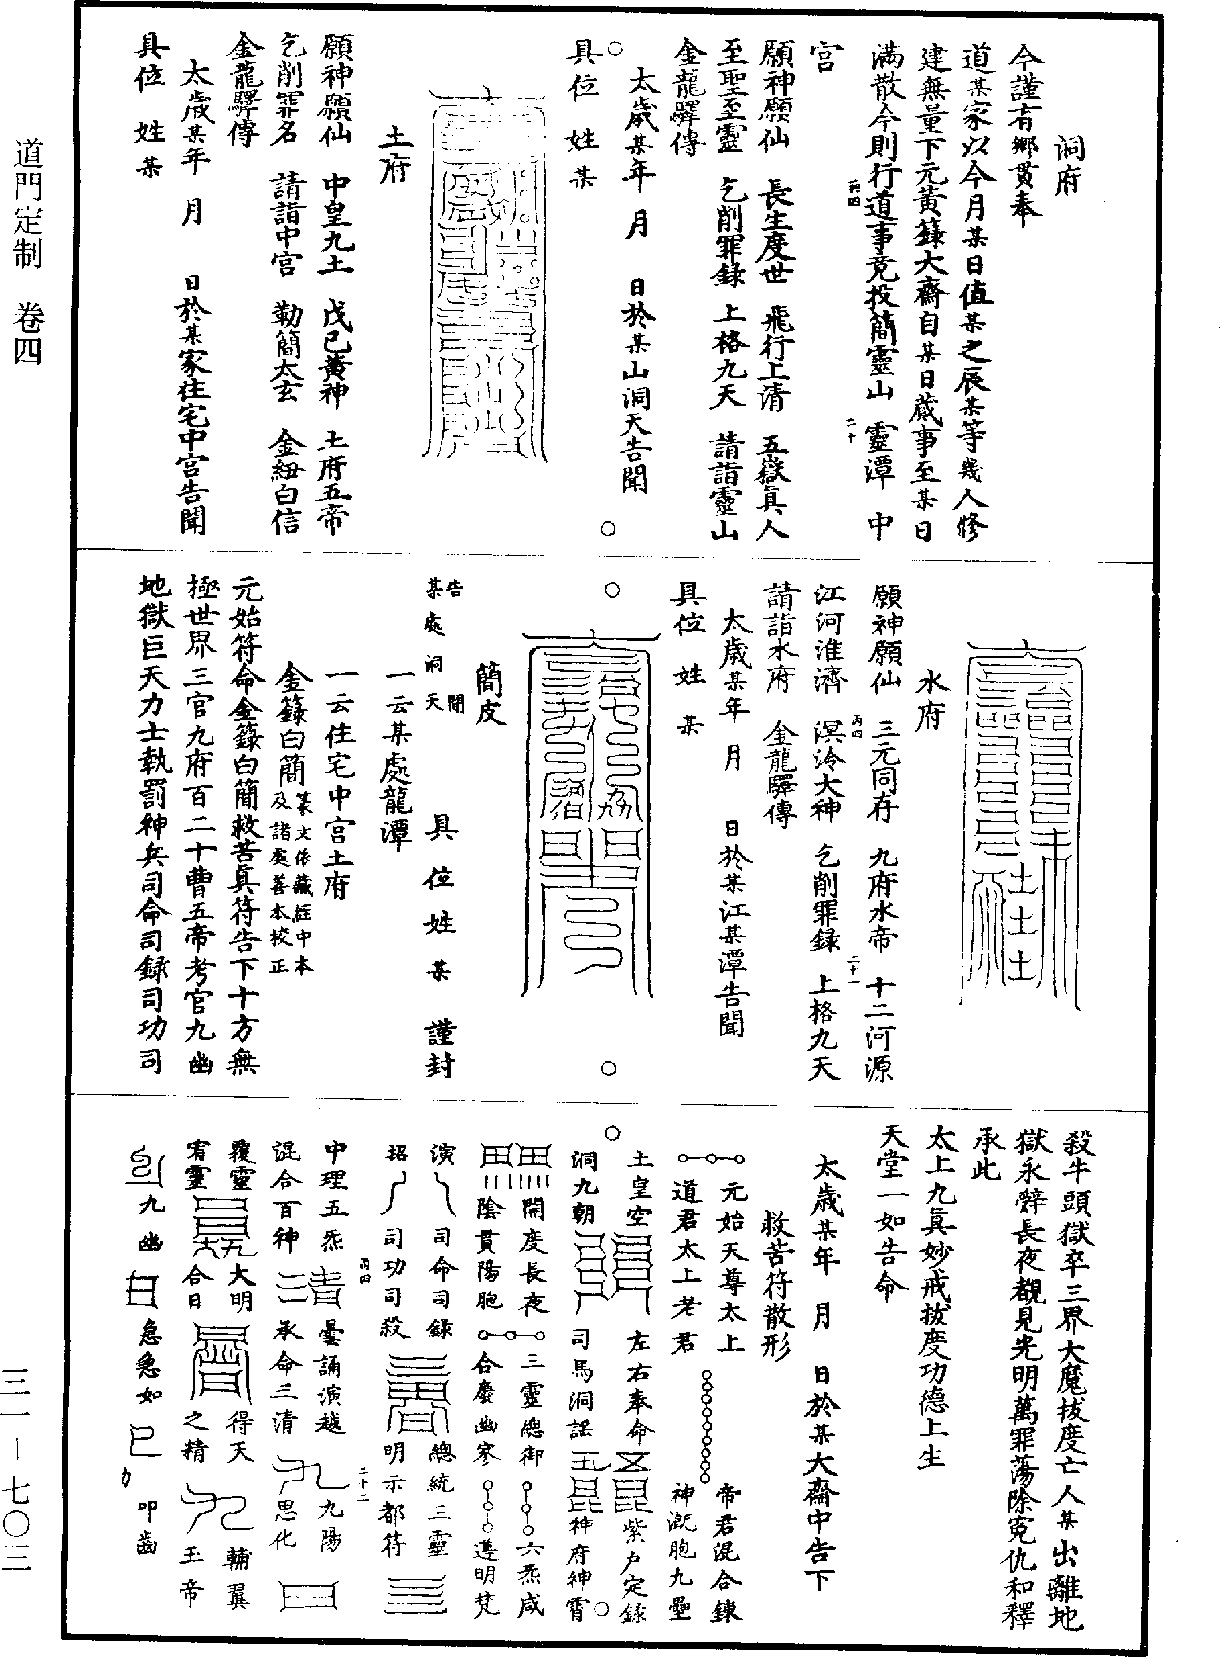 道門定制　卷四
三一－七〇三
洞府
今謹有鄉貫奉
道某家以今月某日值某之辰某等幾人修
建無量下元黃籙大齋自某日蕆事至某日
滿散今則行道事竟投簡靈山　靈潭　中
宮
願神願仙　長生度世　飛行上清　五嶽真人
至聖至靈　乞削罪錄　上格九天　請詣靈山
金龍驛傳
太歲某年　月　日於某山洞天告聞
具位　姓　某
土府
願神願仙　中皇九土　戊己黃神　土府五帝
乞削罪名　請詣中宮　勒簡太玄　金紐白信
金龍驛傳
太歲某年　月　日於某家住宅中宮告聞
具位　姓　某
水府
願神願仙　三元同存　九府水帝　十二河源
江河淮濟　溟泠大神　乞削罪錄　上格九天
請詣水府　金龍驛傳
太歲某年　月　日於某江某潭告聞
具位　姓　某
簡皮
告　聞
某處洞天　具位姓某　謹封
一云某處龍潭
一云住宅中宮土府
金籙白簡篆文依藏經中本及諸處善本校正
元始符命金籙白簡救苦真符告下十方無
極世界三官九府百二十曹五帝考官九幽
地獄巨天力士執罰神兵司命司錄司功司
殺牛頭獄卒三界大魔拔度亡人某出離地
獄永辭長夜覩見光明萬罪蕩除冤仇和釋
承此
太上九真妙戒拔度功德上生
天堂一如告命
太歲某年　月　日於某大齋中告下
救苦符散形
元始天尊太上　帝君混合鍊
道君太上老君　神溉胞九壘
土皇空　左右奉命　紫戶定錄
洞九朝　司馬洞謠　神府神霄
開度長夜　三靈總御　六炁咸
陰貫陽胞　合慶幽寥　遵明梵
演　司命司錄　總統三靈
招　司功司殺　明示都符
中理五炁　曇誦演越　九陽
混合百神　承命三清　思化
覆靈　大明　得天　輔翼
宥靈　合日　之精　玉帝
九幽　急急如　叩齒